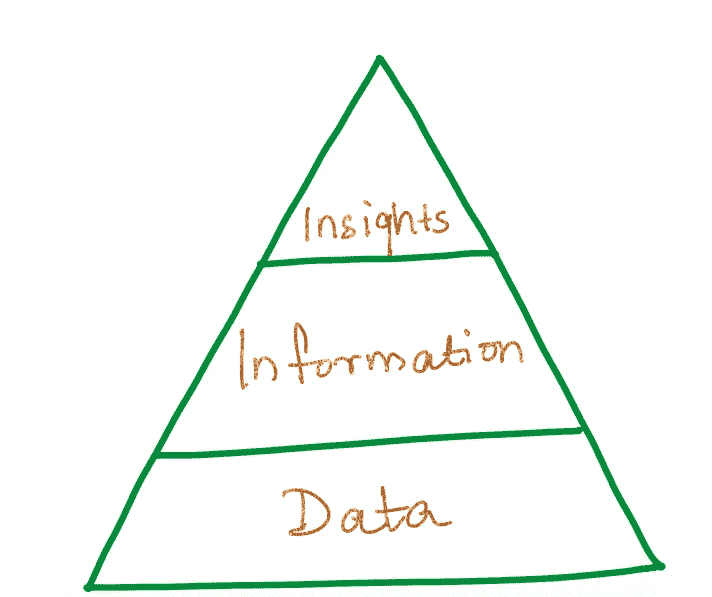 Insights
Information
Data